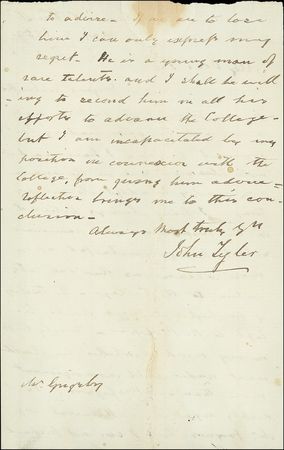 to advise — If we are to lose
him I can only express my
regret. He is a young man of
rare talents. and I shall be will
ing to second him in all his
efforts to advance the College —
but I am incapacitated by my
position in connexion with the
College, from giving him advice —
reflection brings me to this con
clusion —
Always Most truly Yrs
John Tyler
Mr Grigsby